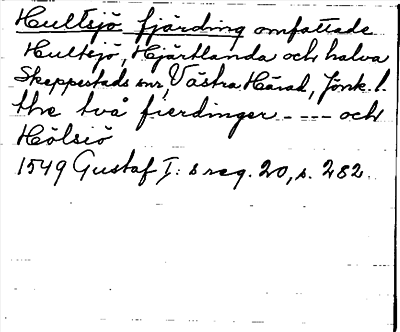 Hultsjö fjärding omfattade
Hultsjö, Hjärtlanda och halva
Skeppestads snr, Västra Härad, Jönk. l.
the två fierdinger - - - och
Hölsiö
1549 Gustaf I:s reg. 20, s. 282.